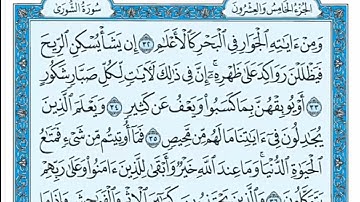 الجزء الخامس والعشرون
سورة الشورى
وَمِنْ ءَايَٰتِهِ ٱلْجَوَارِ فِى ٱلْبَحْرِ كَٱلْأَعْلَٰمِ ٣٢ إِن يَشَأْ يُسْكِنِ ٱلرِّيحَ
فَيَظْلَلْنَ رَوَاكِدَ عَلَىٰ ظَهْرِهِۦٓ إِنَّ فِى ذَٰلِكَ لَءَايَٰتٍ لِّكُلِّ صَبَّارٍ شَكُورٍ
٣٣ أَوْ يُوبِقْهُنَّ بِمَا كَسَبُوا۟ وَيَعْفُ عَن كَثِيرٍ ٣٤ وَيَعْلَمَ ٱلَّذِينَ
يُجَٰدِلُونَ فِىٓ ءَايَٰتِنَا مَا لَهُم مِّن مَّحِيصٍ ٣٥ فَمَآ أُوتِيتُم مِّن شَىْءٍ فَمَتَٰعُ
ٱلْحَيَوٰةِ ٱلدُّنْيَا وَمَا عِندَ ٱللَّهِ خَيْرٌ وَأَبْقَىٰ لِلَّذِينَ ءَامَنُوا۟ وَعَلَىٰ رَبِّهِمْ